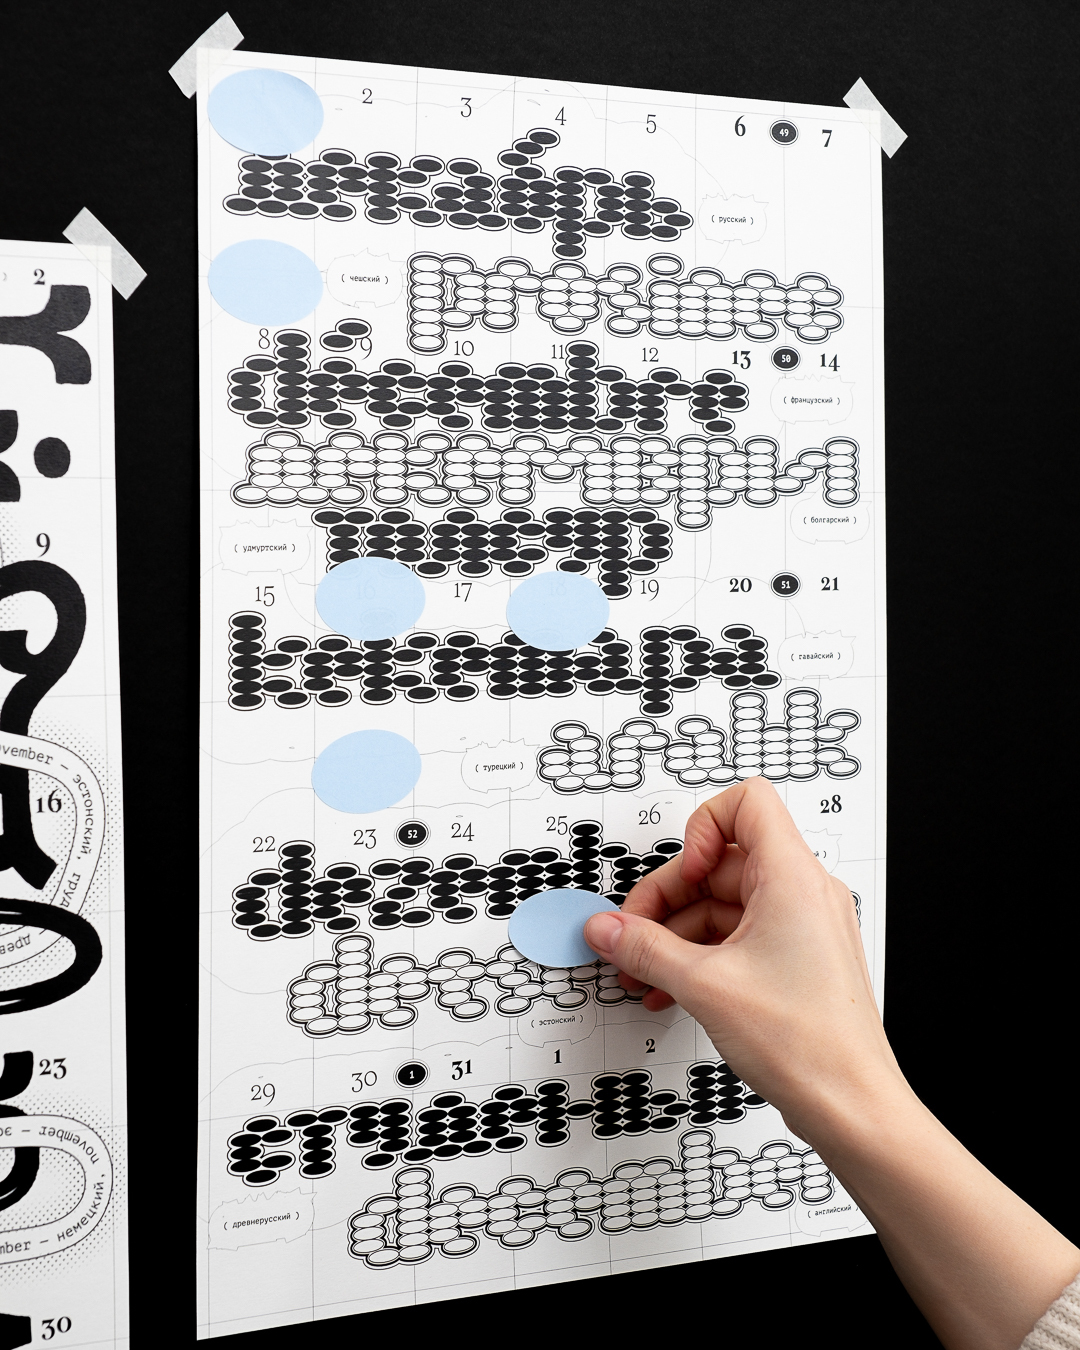 2 3 4 5 6 49 7
декабрь
( русский )
( чешский )
prosinec
8 9 10 11 12 13 50 14
décembre
( французский )
декември
( болгарский )
( удмуртский )
толсур
15 16 17 18 19 20 51 21
kekemapa
( гавайский )
( турецкий )
aralık
22 23 52 24 25 26 28
dezemb
( эстонский )
29 30 1 31 1 2
december
( древнерусский )
( английский )
2
9
vember – эстонский, груд
16
древ
23
november – эс
mber – немецкий,
30